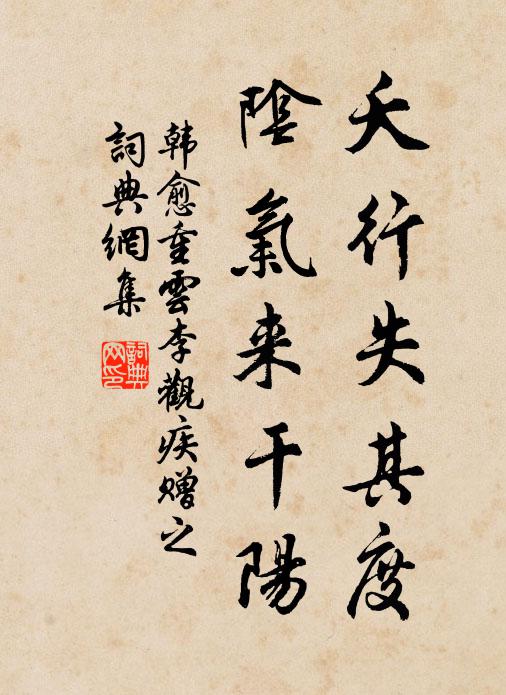 天行失其度
陰氣来干陽
韩愈重雲李觀疾赠之
詞典網集
詞典网印